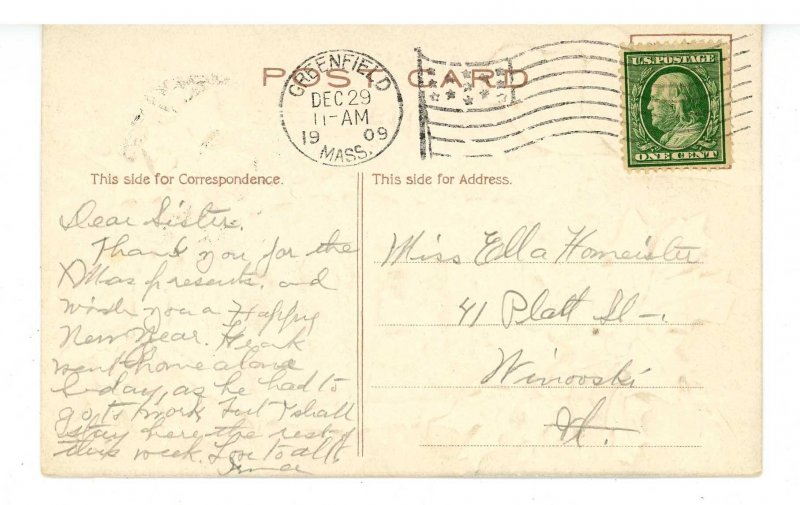 POST CARD
GREENFIELD
DEC 29
11-AM
19 09
MASS.
U.S. POSTAGE
ONE CENT
This side for Correspondence.
Dear Sister.
Thank you for the
Xmas presents. and
wish you a Happy
New Year. Hank
went home alone
to-day, as he had to
go to work but I shall
stay here the rest of
this week. Love to all
This side for Address.
Miss Ella Homeister
41 Platt St.
Winooski
Vt.